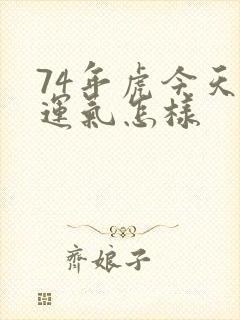 74年虎今天
運氣怎樣
齊娘子